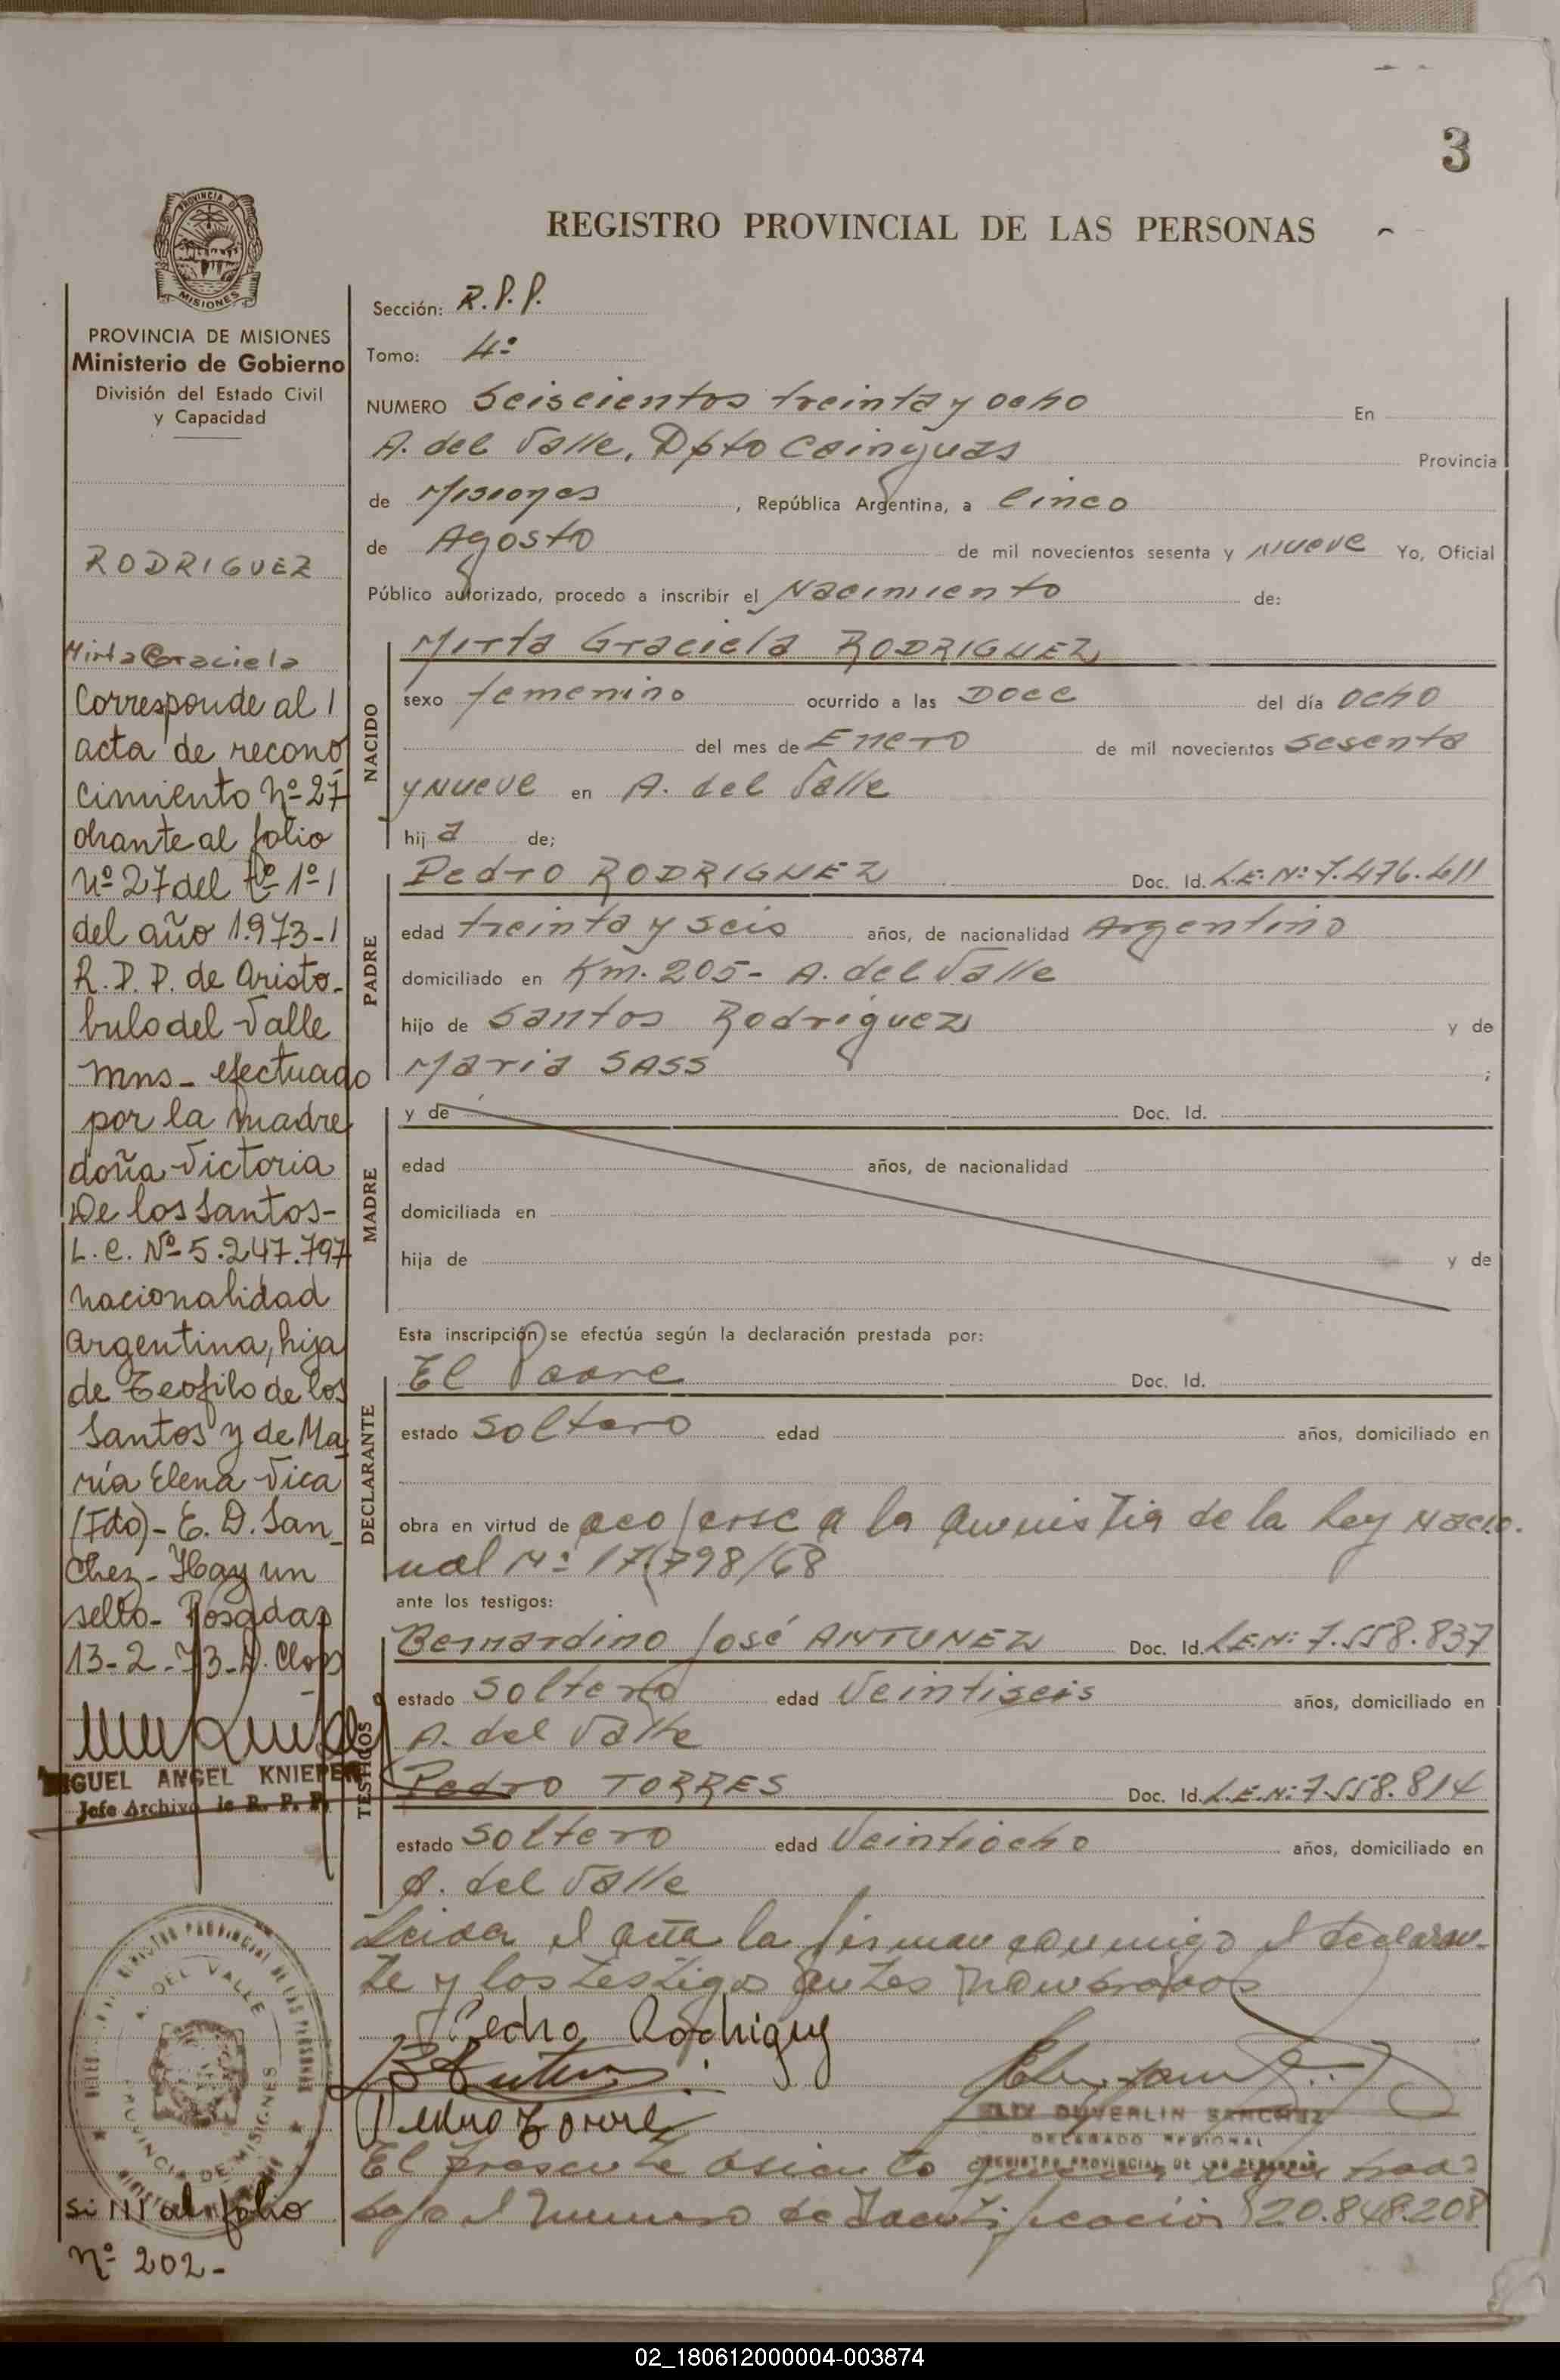 3
PROVINCIA DE
MISIONES
REGISTRO PROVINCIAL DE LAS PERSONAS
PROVINCIA DE MISIONES
Ministerio de Gobierno
División del Estado Civil
y Capacidad
RODRIGUEZ
Mirta Graciela
Corresponde al
acta de recono
cimiento Nº 27
obrante al folio
Nº 27 del tº 1º
del año 1.973-
R.P.P. de Aristo-
bulo del Valle
Mns- efectuado
por la madre
doña Victoria
De los Santos-
L.C. Nº 5.247.797
nacionalidad
argentina, hija
de Teofilo de los
Santos y de Ma
ría Elena Vica
(Fdo)- E. D. San
chez- Hay un
sello- Posadas
13-2-73-
MIGUEL ANGEL KNIEPER
Jefe Archivo de R. P. P.
REGISTRO PROVINCIAL DE LAS PERSONAS
A. DEL VALLE
PROVINCIA DE MISIONES
al folio
Nº 202-
Sección: R.P.P.
Tomo: 4º
NUMERO Seiscientos treinta y ocho En
A. del Valle, Dpto Cainguas Provincia
de Misiones, República Argentina, a Cinco
de Agosto de mil novecientos sesenta y Nueve Yo, Oficial
Público autorizado, procedo a inscribir el Nacimiento de:
NACIDO
Mirta Graciela RODRIGUEZ
sexo femenino ocurrido a las Doce del día Ocho
del mes de Enero de mil novecientos Sesenta
y Nueve en A. del Valle
hija de;
PADRE
Pedro RODRIGUEZ Doc. Id. L.E. Nº 7.476.611
edad treinta y seis años, de nacionalidad Argentino
domiciliado en Km. 205- A. del Valle
hijo de Santos Rodriguez y de
Maria SASS ;
MADRE
y de Doc. Id.
edad años, de nacionalidad
domiciliada en
hija de y de
Esta inscripción se efectúa según la declaración prestada por:
DECLARANTE
El Padre Doc. Id.
estado Soltero edad años, domiciliado en
obra en virtud de acojerse a la amnistia de la Ley Nacio-
nal Nº 17.798/68
ante los testigos:
TESTIGOS
Bernardino José ANTUNEZ Doc. Id. L.E.Nº 7.558.837
estado Soltero edad Veintiseis años, domiciliado en
A. del Valle
Pedro TORRES Doc. Id. L.E.Nº 7.558.814
estado Soltero edad Veintiocho años, domiciliado en
A. del Valle
Leida el acta la firman conmigo el declaran-
te y los testigos antes nombrados
Pedro Rodriguez
Pedro Torres
ELIX DUVERLIN SANCHEZ
DELEGADO REGIONAL
REGISTRO PROVINCIAL DE LAS PERSONAS
El presente asiento
bajo el Numero de Identificación 20.848.208
02_180612000004-003874